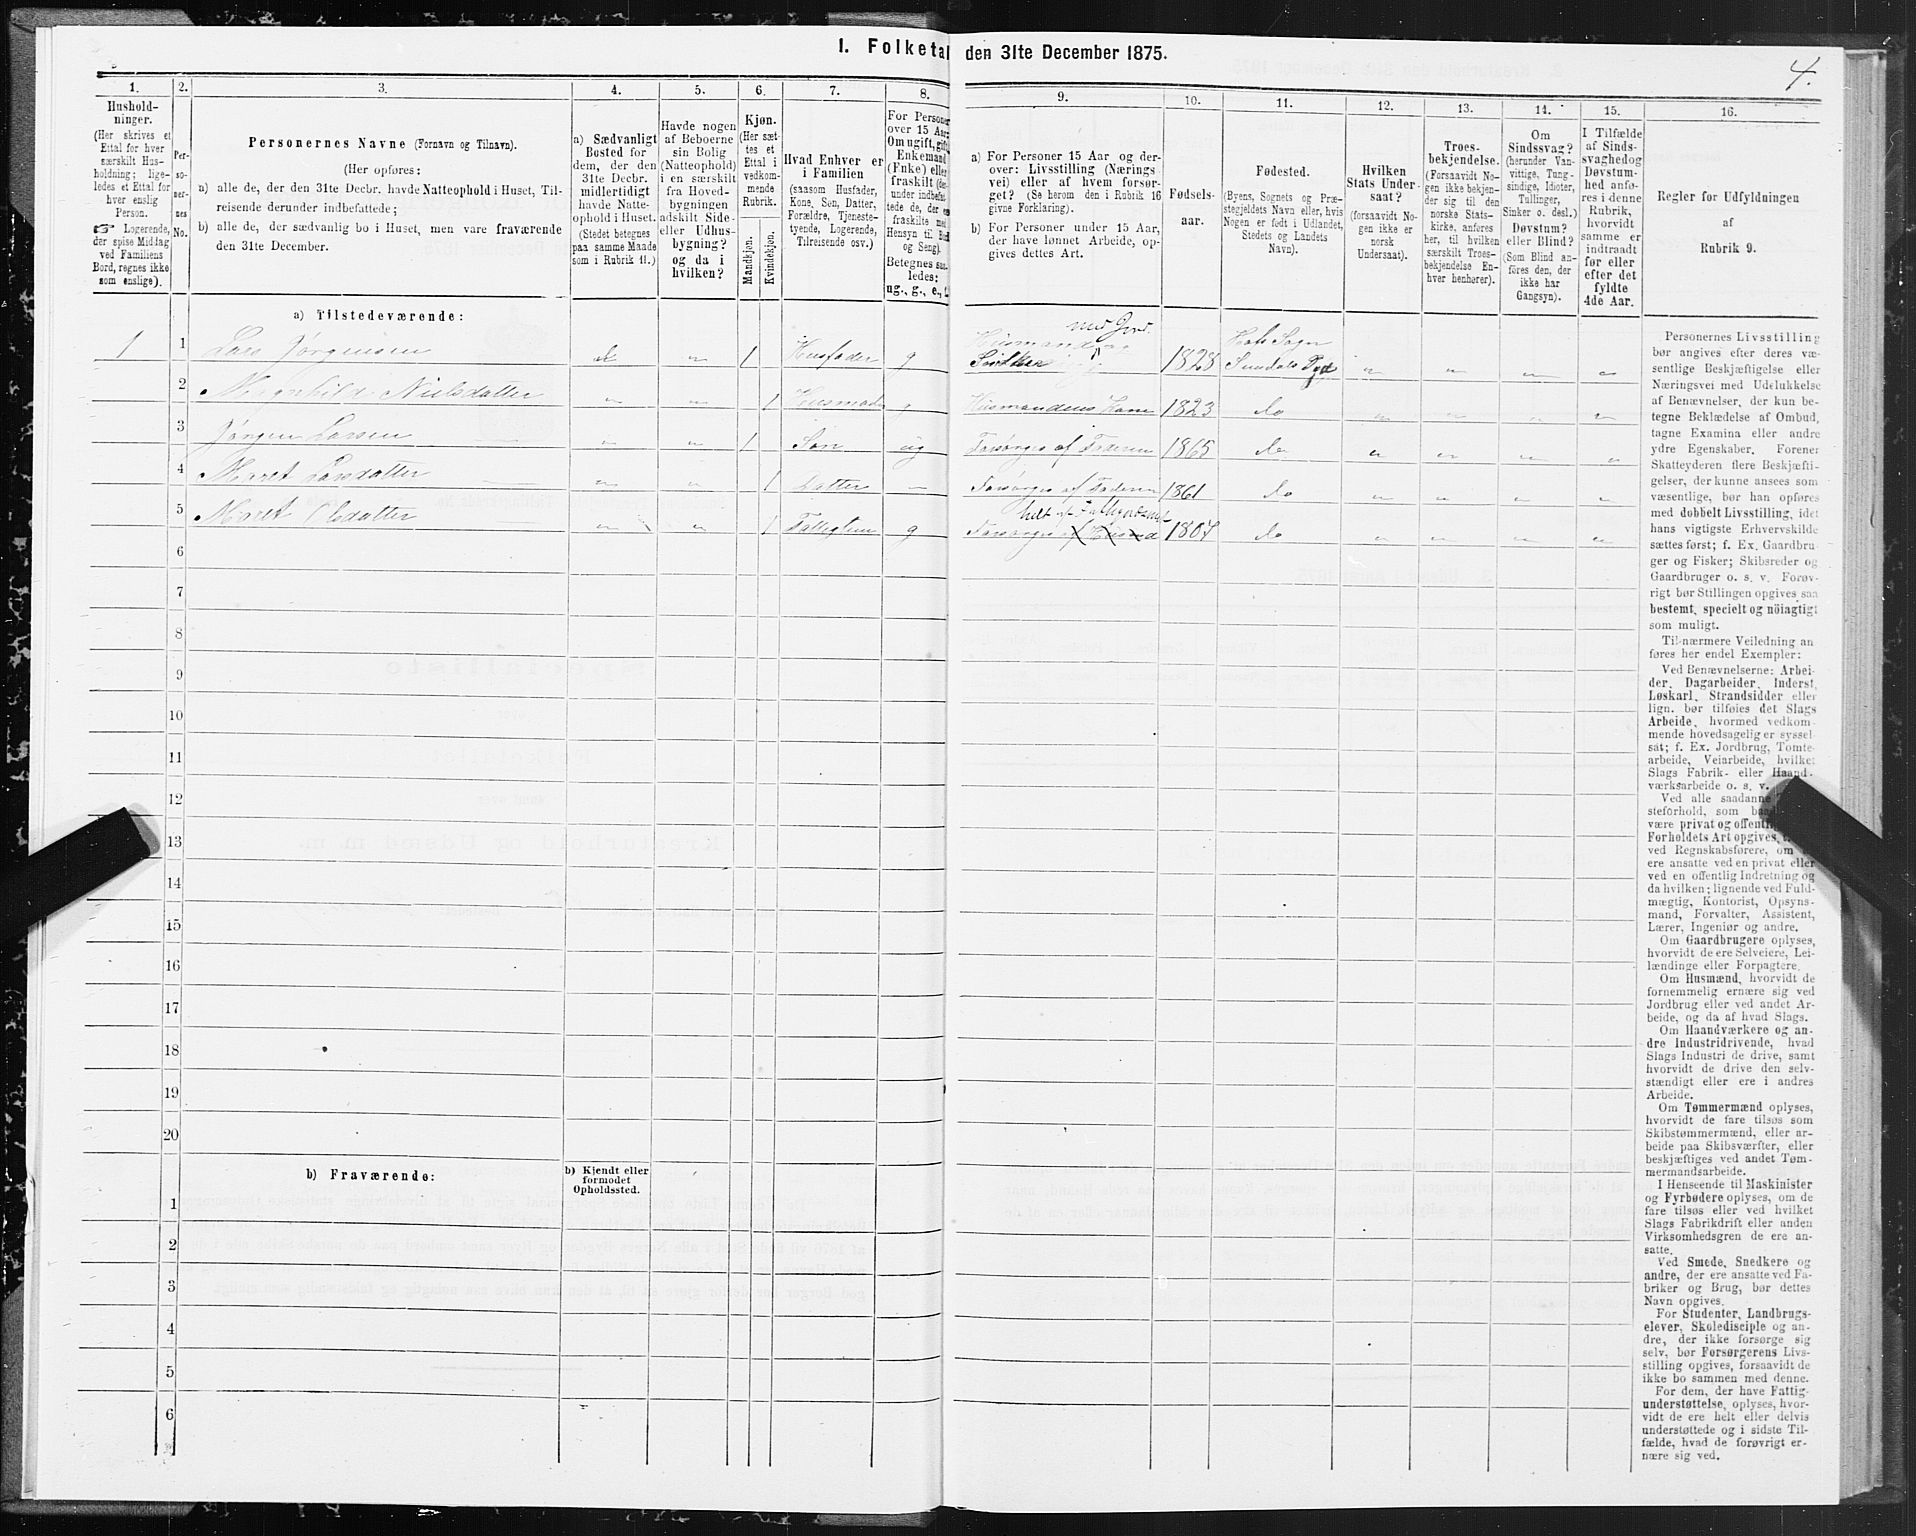 1. Folketal den 31te December 1875.
4.
1.
2.
3.
4.
5.
6.
7.
8.
9.
10.
11.
12.
13.
14.
15.
16.
Hushold-
ninger.
(Her skrives et
Ettal for hver
særskilt Hus-
holdning; lige-
ledes et Ettal for
hver enslig
Person.
☞ Logerende,
der spise Middag
ved Familiens
Bord, regnes ikke
som enslige).
Per-
so-
ner-
nes
No.
Personernes Navne (Fornavn og Tilnavn).
(Her opføres:
a) alle de, der den 31te Decbr. havde Natteophold i Huset, Til-
reisende derunder indbefattede;
b) alle de, der sædvanlig bo i Huset, men vare fraværende
den 31te December.
a) Sædvanligt
Bosted for
dem, der den
31te Decbr.
midlertidigt
havde Natte-
ophold i Huset.
(Stedet betegnes
paa samme Maade
som i Rubrik 11.)
Havde nogen
af Beboerne
sin Bolig
(Natteophold)
i en særskilt
fra Hoved-
bygningen
adskilt Side-
eller Udhus-
bygning?
og da i
hvilken?
Kjøn.
(Her sæt-
tes et
Ettal i
vedkom-
mende
Rubrik.
Mandkjøn.
Kvindekjøn.
Hvad Enhver er
i Familien
(saasom Husfader,
Kone, Søn, Datter,
Forældre, Tjeneste-
tyende, Logerende,
Tilreisende osv.)
For Personer
over 15 Aar:
Om ugift, gift,
Enkemand
(Enke) eller
fraskilt (der-
under indbefat-
tede de, der ere
fraskilte med
Hensyn til Bord
og Seng).
Betegnes saa-
ledes:
ug., g., e., f.
a) For Personer 15 Aar og der-
over: Livsstilling (Nærings-
vei) eller af hvem forsør-
get? (Se herom den i Rubrik 16
givne Forklaring).
b) For Personer under 15 Aar,
der have lønnet Arbeide, op-
gives dettes Art.
Fødsels-
aar.
Fødested.
(Byens, Sognets og Præ-
stegjeldets Navn eller, hvis
Nogen er født i Udlandet,
Stedets og Landets
Navn).
Hvilken
Stats Under-
saat?
(forsaavidt No-
gen ikke er
norsk
Undersaat).
Troes-
bekjendelse.
(Forsaavidt No-
gen ikke bekjen-
der sig til den
norske Stats-
kirke, anføres
her, til hvilken
særskilt Troes-
bekjendelse En-
hver henhører).
Om
Sindssvag?
(herunder Van-
vittige, Tung-
sindige, Idioter,
Tullinger,
Sinker o. desl.)
Døvstum?
eller Blind?
(Som Blind an-
føres den, der
ikke har
Gangsyn).
I Tilfælde
af Sinds-
svaghedog
Døvstum-
hed anfø-
res i denne
Rubrik,
hvorvidt
samme er
indtraadt
før eller
efter det
fyldte
4de Aar.
Regler for Udfyldningen
af
Rubrik 9.
a) Tilstedeværende:
med Jord
1 1 Lars Jørgensen do „ 1 Husfader g Husmand 1828 Hols Sogn
Sundals Pgd „ „ „ „
2 Magnhild Nielsdatter „ „ 1 Husmoder g Husmandens Kone 1823 do „ „ „ „
3 Jørgen Larsen „ „ 1 Søn ug Forsørges af Faderen 1865 do „ „ „ „
4 Maret Larsdatter „ „ 1 Datter „ Forsørges af Faderen 1861 do „ „ „ „
helt af Fattigvæsnet
5 Maret Olsdatter „ „ 1 Fattiglem g Forsørges af 1807 do „ „ „ „
6
7
8
9
10
11
12
13
14
15
16
17
18
19
20
b) Fraværende:
b) Kjendt eller
formodet
Opholdssted.
1
2
3
4
5
6
Personernes Livsstilling
bør angives efter deres væ-
sentlige Beskjæftigelse eller
Næringsvei med Udelukkelse
af Benævnelser, der kun be-
tegne Beklædelse af Ombud,
tagne Examina eller andre
ydre Egenskaber. Forener
Skatteyderen flere Beskjæfti-
gelser, der kunne ansees som
væsentlige, bør han opføres
med dobbelt Livsstilling, idet
hans vigtigste Erhvervskilde
sættes først; f. Ex. Gaardbru-
ger og Fisker; Skibsreder og
Gaardbruger o. s. v. Forøv-
rigt bør Stillingen opgives saa
bestemt, specielt og nöiagtigt
som muligt.
Til nærmere Veiledning an
føres her endel Exempler:
Ved Benævnelserne: Arbei-
der, Dagarbeider, Inderst,
Løskarl, Strandsidder eller
lign. bør tilføies det Slags
Arbeide, hvormed vedkom-
mende hovedsagelig er syssel-
sat; f. Ex. Jordbrug, Tomte-
arbeide, Veiarbeide, hvilket
Slags Fabrik- eller Haand-
værksarbeide o. s. v.
Ved alle saadanne
steforhold, som
være privat og offentlig
Forholdets Art opgives,
ved Regnskabsførere, om
ere ansatte ved en privat eller
ved en offentlig Indretning og
da hvilken; lignende ved Fuld-
mægtig, Kontorist, Opsyns-
mand, Forvalter, Assistent,
Lærer, Ingeniør og andre.
Om Gaardbrugere oplyses,
hvorvidt de ere Selveiere, Lei-
lændinge eller Forpagtere.
Om Husmænd, hvorvidt de
fornemmelig ernære sig ved
Jordbrug eller ved andet Ar-
beide, og da af hvad Slags.
Om Haandværkere og an-
dre Industridrivende, hvad
Slags Industri de drive, samt
hvorvidt de drive den selv-
stændigt eller ere i andres
Arbeide.
Om Tømmermænd oplyses,
hvorvidt de fare tilsøs som
Skibstømmermænd, eller ar-
beide paa Skibsværfter, eller
beskjæftiges ved andet Tøm-
mermandsarbeide.
I Henseende til Maskinister
og Fyrbødere oplyses, om de
fare tilsøs eller ved hvilket
Slags Fabrikdrift eller anden
Virksomhedsgren de ere an-
satte.
Ved Smede, Snedkere og
andre, der ere ansatte ved Fa-
briker og Brug, bør dettes
Navn opgives.
For Studenter, Landbrugs-
elever, Skoledisciple og an-
dre, der ikke forsørge sig
selv, bør Forsørgerens Livs-
stilling opgives, forsaavidt de
ikke bo sammen med denne.
For dem, der have Fattig-
understøttelse, oplyses, hvor-
vidt de ere helt eller delvis
understøttede og i sidste Til-
fælde, hvad de forøvrigt er-
nære sig ved.